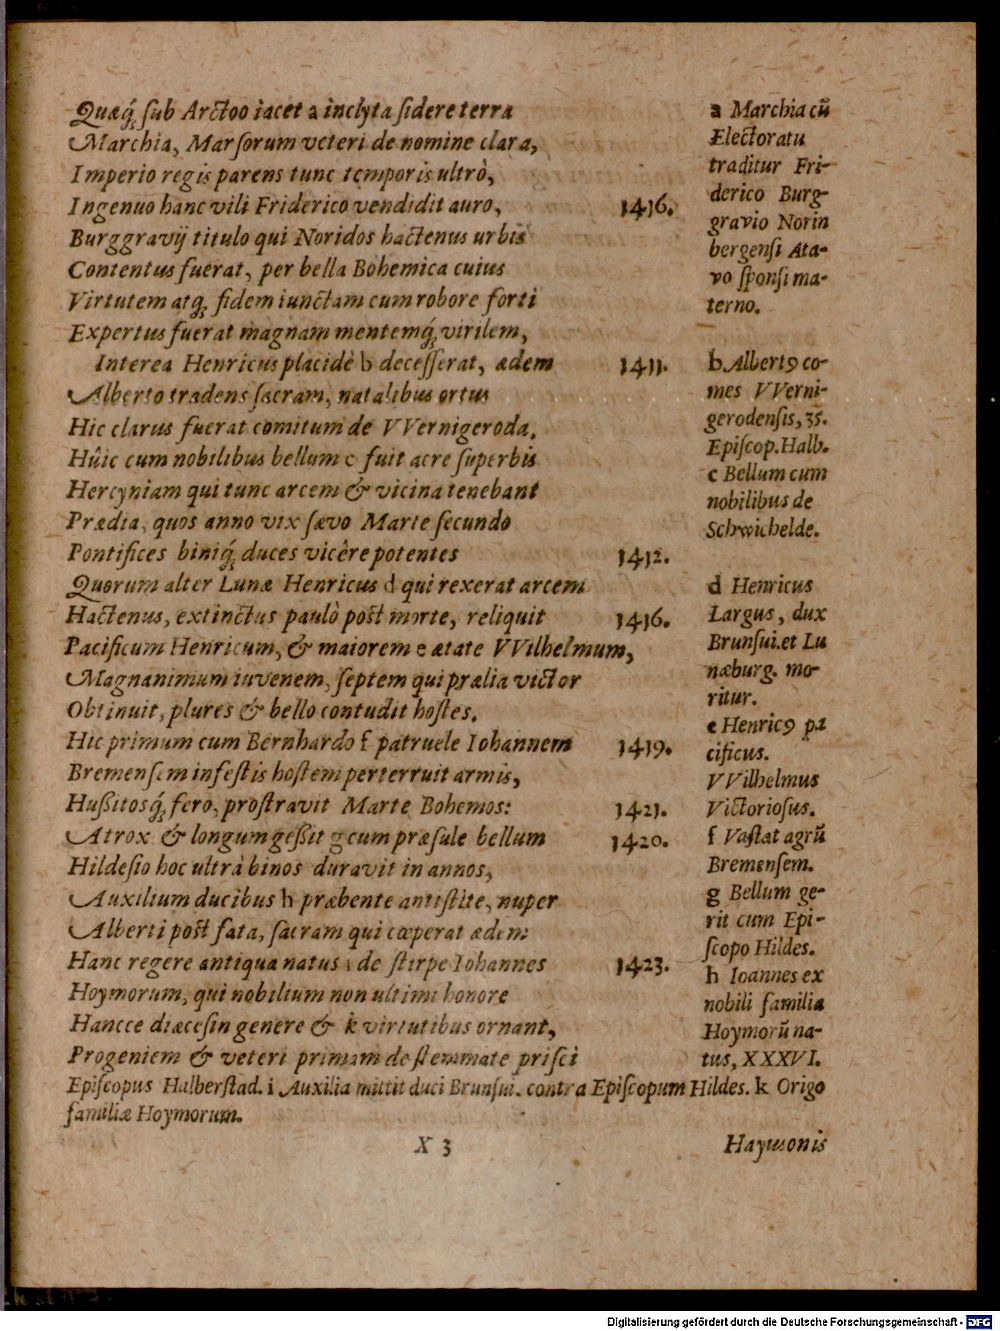 Quæq́; ſub Arctoo iacet a inclyta ſidere terra
Marchia, Marſorum veteri de nomine clara,
Imperio regis parens tunc temporis ultrò,
Ingenuo hanc vili Friderico vendidit auro, 1416.
Burggravij titulo qui Noridos hactenus urbis
Contentus fuerat, per bella Bohemica cuius
Virtutem atq; fidem iunctam cum robore forti
Expertus fuerat magnam mentemq́; virilem,
Interea Henricus placidè b deceſſerat, ædem 1411.
Alberto tradens ſacram, natalibus ortus
Hic clarus fuerat comitum de VVernigeroda,
Hûic cum nobilibus bellum c fuit acre ſuperbis
Hercyniam qui tunc arcem & vicina tenebant
Prædia, quos anno vix ſævo Marte ſecundo
Pontifices biniq́; duces vicêre potentes 1412.
Quorum alter Lunæ Henricus d qui rexerat arcem
Hactenus, extinctus paulò poſt morte, reliquit 1416.
Pacificum Henricum, & maiorem e ætate VVilhelmum,
Magnanimum iuvenem, ſeptem qui prælia victor
Obtinuit, plures & bello contudit hoſtes,
Hic primum cum Bernhardo f patruele Iohannem 1419.
Bremenſem infeſtis hoſtem perterruit armis,
Hußitosq́; fero, proſtravit Marte Bohemos: 1421.
Atrox & longum geßit g cum præſule bellum 1420.
Hildeſio hoc ultrà binos duravit in annos,
Auxilium ducibus h præbente antiſtite, nuper
Alberti poſt fata, ſacram qui cœperat ædem
Hanc regere antiqua natus i de ſtirpe Iohannes 1423.
Hoymorum, qui nobilium non ultimi honore
Hancce diæceſin genere & k virtutibus ornant,
Progeniem & veteri primam de ſtemmate priſci
a Marchia cũ
Electoratu
traditur Fri-
derico Burg-
gravio Norin
bergenſi Ata-
vo ſponſi ma-
terno.
b Albertꝰ co-
mes VVerni-
gerodenſis, 35.
Epiſcop. Halb.
c Bellum cum
nobilibus de
Schwichelde.
d Henricus
Largus, dux
Brunſui. et Lu
næburg. mo-
ritur.
e Henricꝰ pa
cificus.
VVilhelmus
Victorioſus.
f Vaſtat agrũ
Bremenſem.
g Bellum ge-
rit cum Epi-
ſcopo Hildes.
h Ioannes ex
nobili familia
Hoymorũ na-
tus, XXXVI.
Epiſcopus Halberſtad. i Auxilia mittit duci Brunſui. contra Epiſcopum Hildes. k Origo
familiæ Hoymorum.
X 3
Haymonis
Digitalisierung gefördert durch die Deutsche Forschungsgemeinschaft - DFG